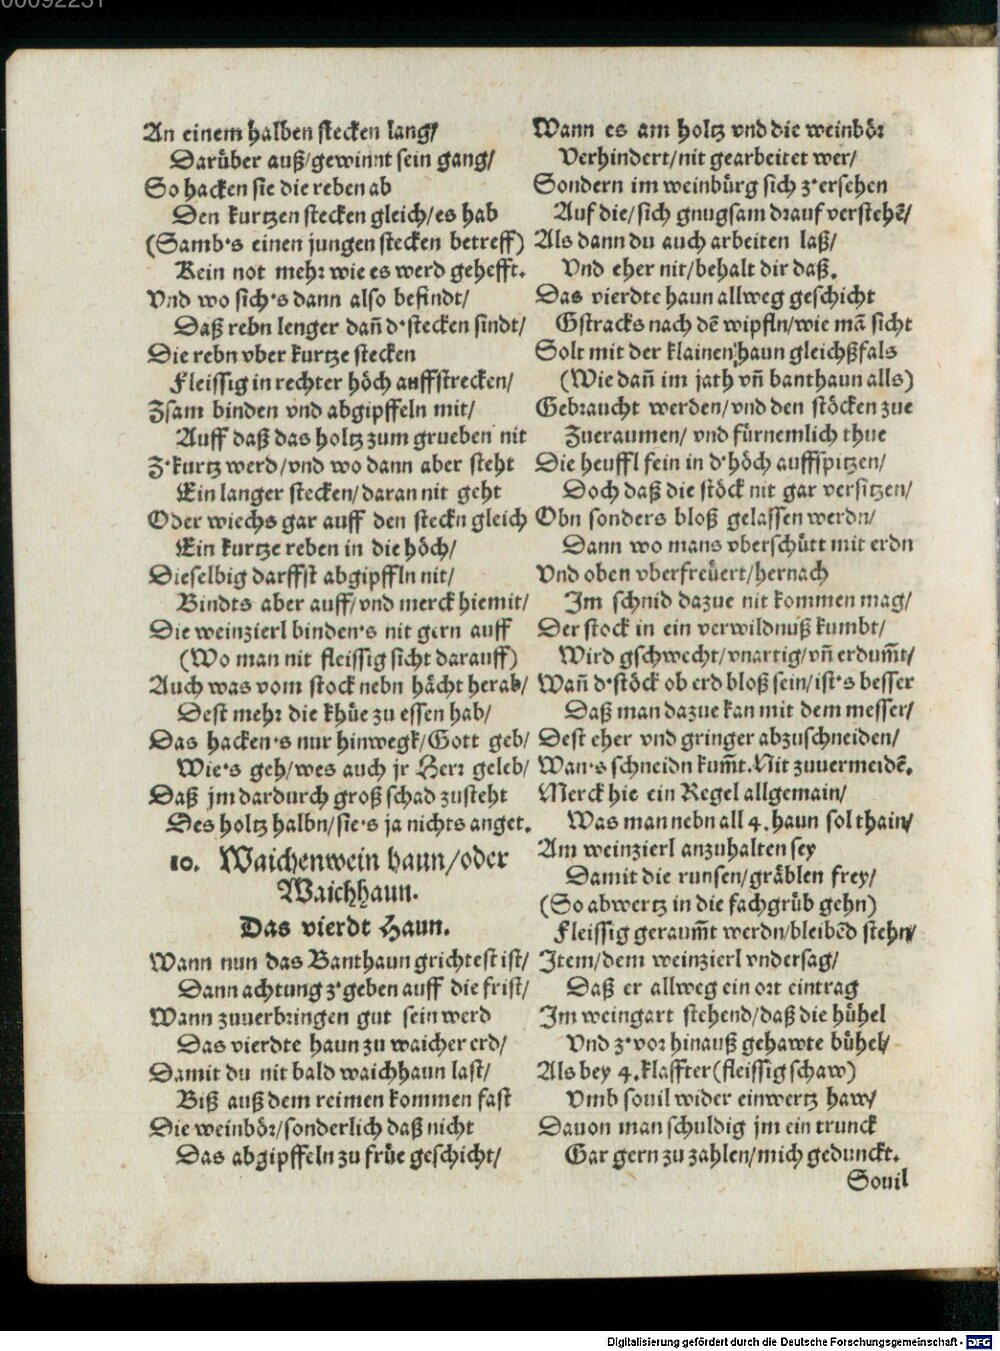 00092231
An einem halben stecken lang/
Darüber auß/gewinnt sein gang/
So hacken sie die reben ab
Den kurtzen stecken gleich/es hab
(Samb's einen jungen stecken betreff)
Kein not mehr wie es werd gehefft.
Vnd wo sich's dann also befindt/
Daß rebn lenger dañ d'stecken sindt/
Die rebn vber kurtze stecken
Fleissig in rechter höch auffstrecken/
Zsam binden vnd abgipffeln mit/
Auff daß das holtz zum grueben nit
Z'kurtz werd/vnd wo dann aber steht
Ein langer stecken/daran nit geht
Oder wiechs gar auff den steckn gleich
Ein kurtze reben in die höch/
Dieselbig darffst abgipffln nit/
Bindts aber auff/vnd merck hiemit/
Die weinzierl binden's nit gern auff
(Wo man nit fleissig sicht darauff)
Auch was vom stock nebn hächt herab/
Dest mehr die khüe zu essen hab/
Das hacken's nur hinwegk/Gott geb/
Wie's geh/wes auch jr Herr geleb/
Daß jm dardurch groß schad zusteht
Des holtz halbn/sie's ja nichts anget.
10. Waichenwein haun/oder
Waichhaun.
Das vierdt Haun.
Wann nun das Banthaun grichtest ist/
Dann achtung z'geben auff die frist/
Wann zuuerbringen gut sein werd
Das vierdte haun zu waicher erd/
Damit du nit bald waichhaun last/
Biß auß dem reimen kommen fast
Die weinbör/sonderlich daß nicht
Das abgipffeln zu früe geschicht/
Wann es am holtz vnd die weinbör
Verhindert/nit gearbeitet wer/
Sondern im weinbürg sich z'ersehen
Auf die/sich gnugsam drauf verstehē/
Als dann du auch arbeiten laß/
Vnd eher nit/behalt dir daß.
Das vierdte haun allweg geschicht
Gstracks nach dē wipfln/wie mā sicht
Solt mit der klainen haun gleichßfals
(Wie dañ im jath vñ banthaun alls)
Gebraucht werden/vnd den stöcken zue
Zueraumen/ vnd fürnemlich thue
Die heuffl fein in d'höch auffspitzen/
Doch daß die stöck nit gar versitzen/
Obn sonders bloß gelassen werdn/
Dann wo mans vberschütt mit erdn
Vnd oben vberfreüert/hernach
Im schnid dazue nit kommen mag/
Der stock in ein verwildnuß kumbt/
Wird gschwecht/vnartig/vñ erdum̃t/
Wañ d'stöck ob erd bloß sein/ist's besser
Daß man dazue kan mit dem messer/
Dest eher vnd gringer abzuschneiden/
Wan's schneidn kum̃t. Nit zuuermeidē.
Merck hie ein Regel allgemain/
Was man nebn all 4. haun sol thain/
Am weinzierl anzuhalten sey
Damit die runsen/gräblen frey/
(So abwertz in die fachgrüb gehn)
Fleissig geraum̃t werdn/bleibēd stehn/
Item/dem weinzierl vndersag/
Daß er allweg ein ort eintrag
Im weingart stehend/daß die hühel
Vnd z'vor hinauß gehawte bühel/
Als bey 4. klaffter(fleissig schaw)
Vmb souil wider einwertz haw/
Dauon man schuldig jm ein trunck
Gar gern zu zahlen/mich gedunckt.
Souil
Digitalisierung gefördert durch die Deutsche Forschungsgemeinschaft - DFG